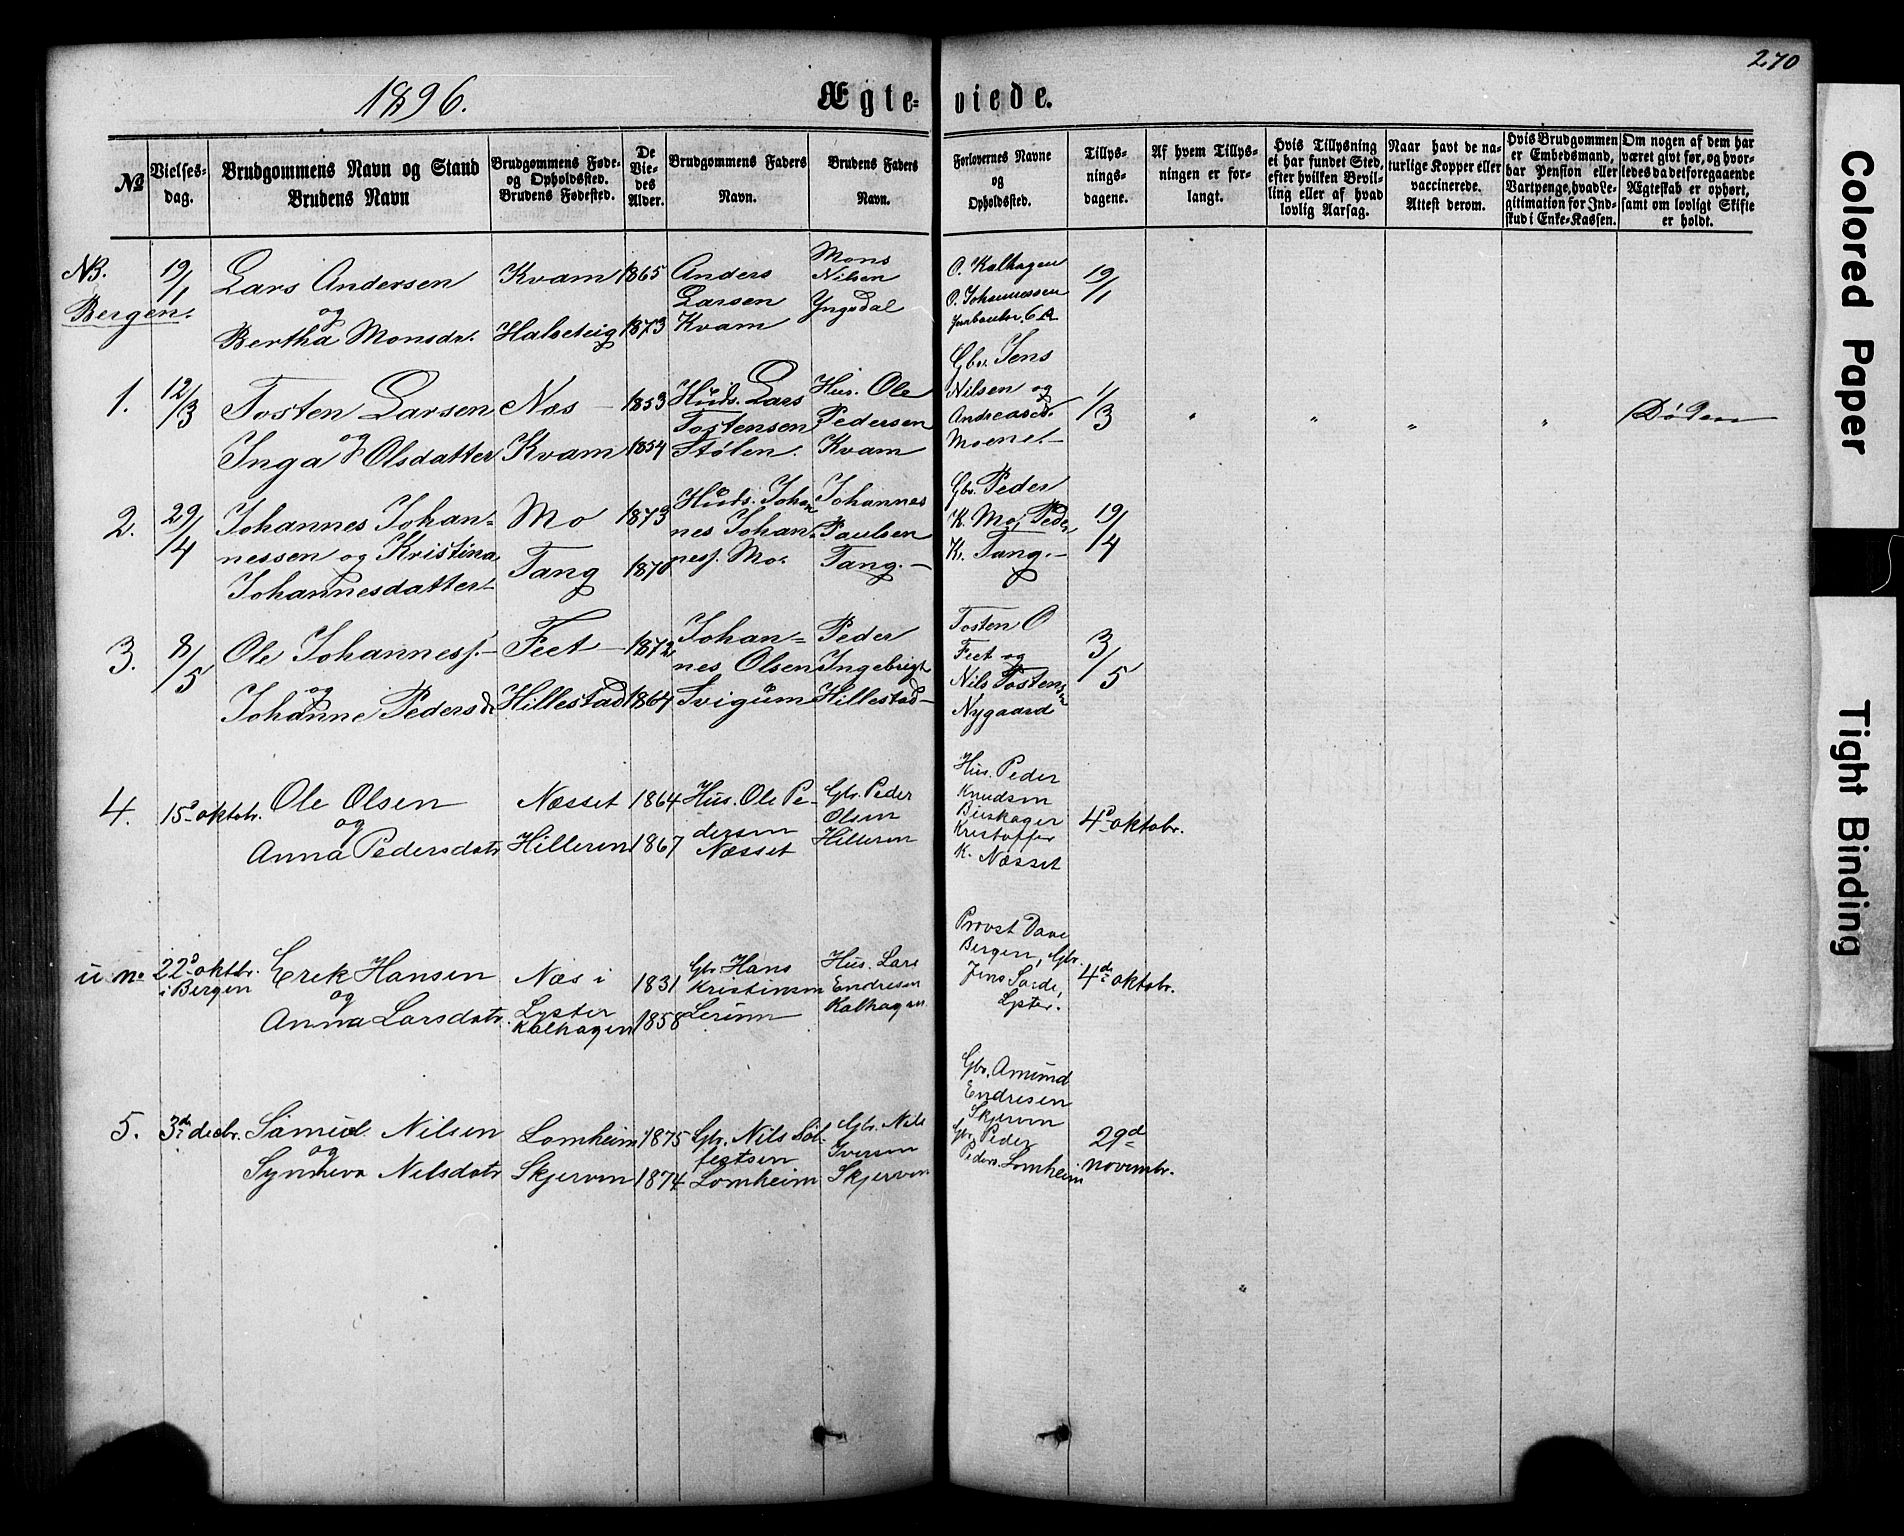 270
1896.
Ægteviede.
No
Vielses-
dag.
Brudgommens Navn og Stand
Brudens Navn
Brudgommens Føde-
og Opholdssted.
Brudens Fødested.
De
Vie-
des
Alder.
Brudgommens Faders
Navn.
Brudens Faders
Navn.
Forlovernes Navne
og
Opholdssted.
Tillys-
nings-
dagene.
Af hvem Tillys-
ningen er for-
langt.
Hvis Tillysning
ei har fundet Sted,
efter hvilken Bevil-
ling eller af hvad
lovlig Aarsag.
Naar havt de na-
turlige Kopper eller
vaccinerede.
Attest derom.
Hvis Brudgommen
er Embedsmand,
har Pension eller
Vartpenge, hvad Le-
gitimation for Ind-
skud i Enke-Kassen.
Om nogen af dem har
været givt før, og hvor-
ledes da det foregaaende
Ægteskab er ophørt,
samt om lovligt Skifte
er holdt.
NB.
Bergen.
19/1
Lars Andersen
og
Bertha Monsdr.
Kvam
Halseteig
1865
1873
Anders
Larsen
Kvam
Mons
Nilsen
Yngsdal
O. Kalhagen
O. Johannessen
19/1
1.
12/3
Tosten Larsen
og
Inga Olsdatter
Nos
Kvam
1853
1854
Huds. Lars
Tostensen
Stølen.
Hus. Ole
Pedersen
Kvam
Gbr. Jens
Nilsen og
Moene
1/3
" " " "
Døden
2.
29/4
Johannes Johan-
nessen og Kristina
Johannesdatter
Mo
Tang
1873
1870
Huds. Johan
nes Johan-
nesf. Mo.
Johannes
Paulsen
Tang.
Gbr. Peder
K. Mo, Peder
K. Tang.
19/4
3.
8/5
Ole Johannesf.
og
Johanne Pedersd
Feet
Hillestad
1872
1864
Johan-
nes Olsen
Svigum
Peder
Ingebrigt
Hillestad
Tosten O
Feet og
Nils Tostensen
Nygaard
3/5
4.
15de oktobr.
Ole Olsen
og
Anna Pedersdatr
Næsset
Hilleren
1864
1867
Hus. Ole Pe-
dersen
Næsset
Gbr. Peder
Olsen
Hilleren
Hus. Peder
Knudsen
Buskager
Kristoffer
K. Næsset
4de oktobr.
u. no
22de oktbr.
i Bergen
Erik Hansen
og
Anna Larsdatr.
Næs i
Lyster
Kalhagen
1831
1858
Gbr Hans
Kristensen
Lerum
Hus. Lars
Endresen
Kalhagen
Provst Dave
Bergen, Gbr.
Jens Sørde,
Lyster.
4de oktobr.
5.
3die decbr.
Samuel Nilsen
og
Synneva Nilsdatr
Lomheim
Skjerven
1875
1874
Gbr. Nils Sål-
festsen
Lomheim
Gbr. Nils
Iversen
Skjerven
Gbr. Amund
Endresen
Skjerven
Gbr. Peder
Peders. Lomheim
29de
novembr.
Colored Paper
Tight Binding